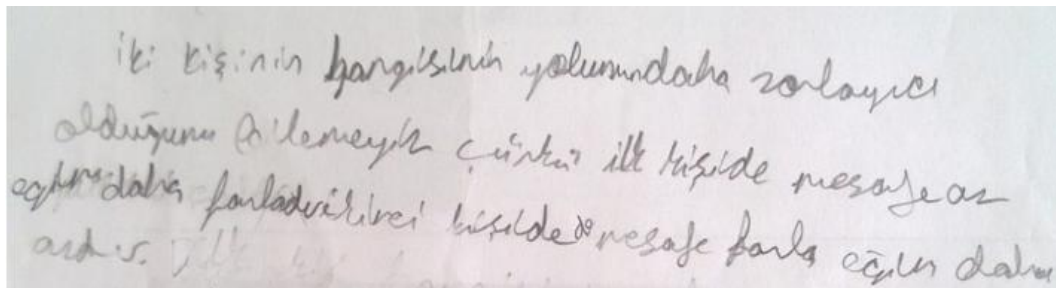 iki kişinin hangisinin yolunun daha zorlayıcı
olduğunu bilemeyiz çünkü ilk kişide mesafe az
eğim daha fazladır ikinci kişide de mesafe fazla eğim daha
azdır. İlk